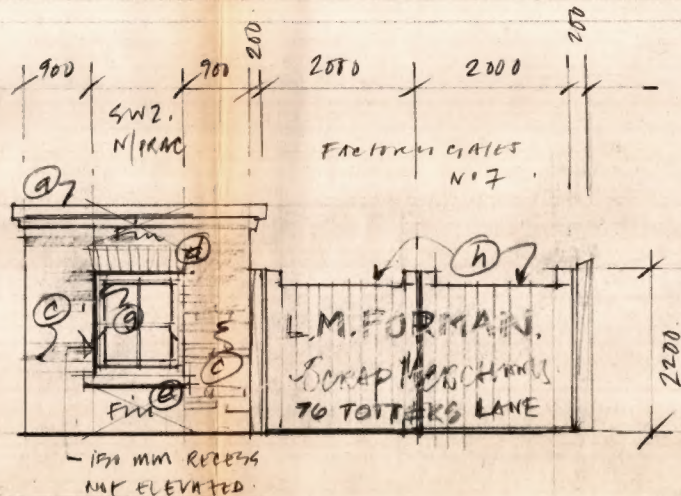 900
900
200
2000
2000
200
SW2.
N/PRAC
FACTORY GATES
Nº 7.
a
Fill
d
h
c
g
c
L.M. FORMAN.
SCRAP MERCHANTS
76 TOTTERS LANE
e
Fill
2200
- 150 MM RECESS
NOT ELEVATED.